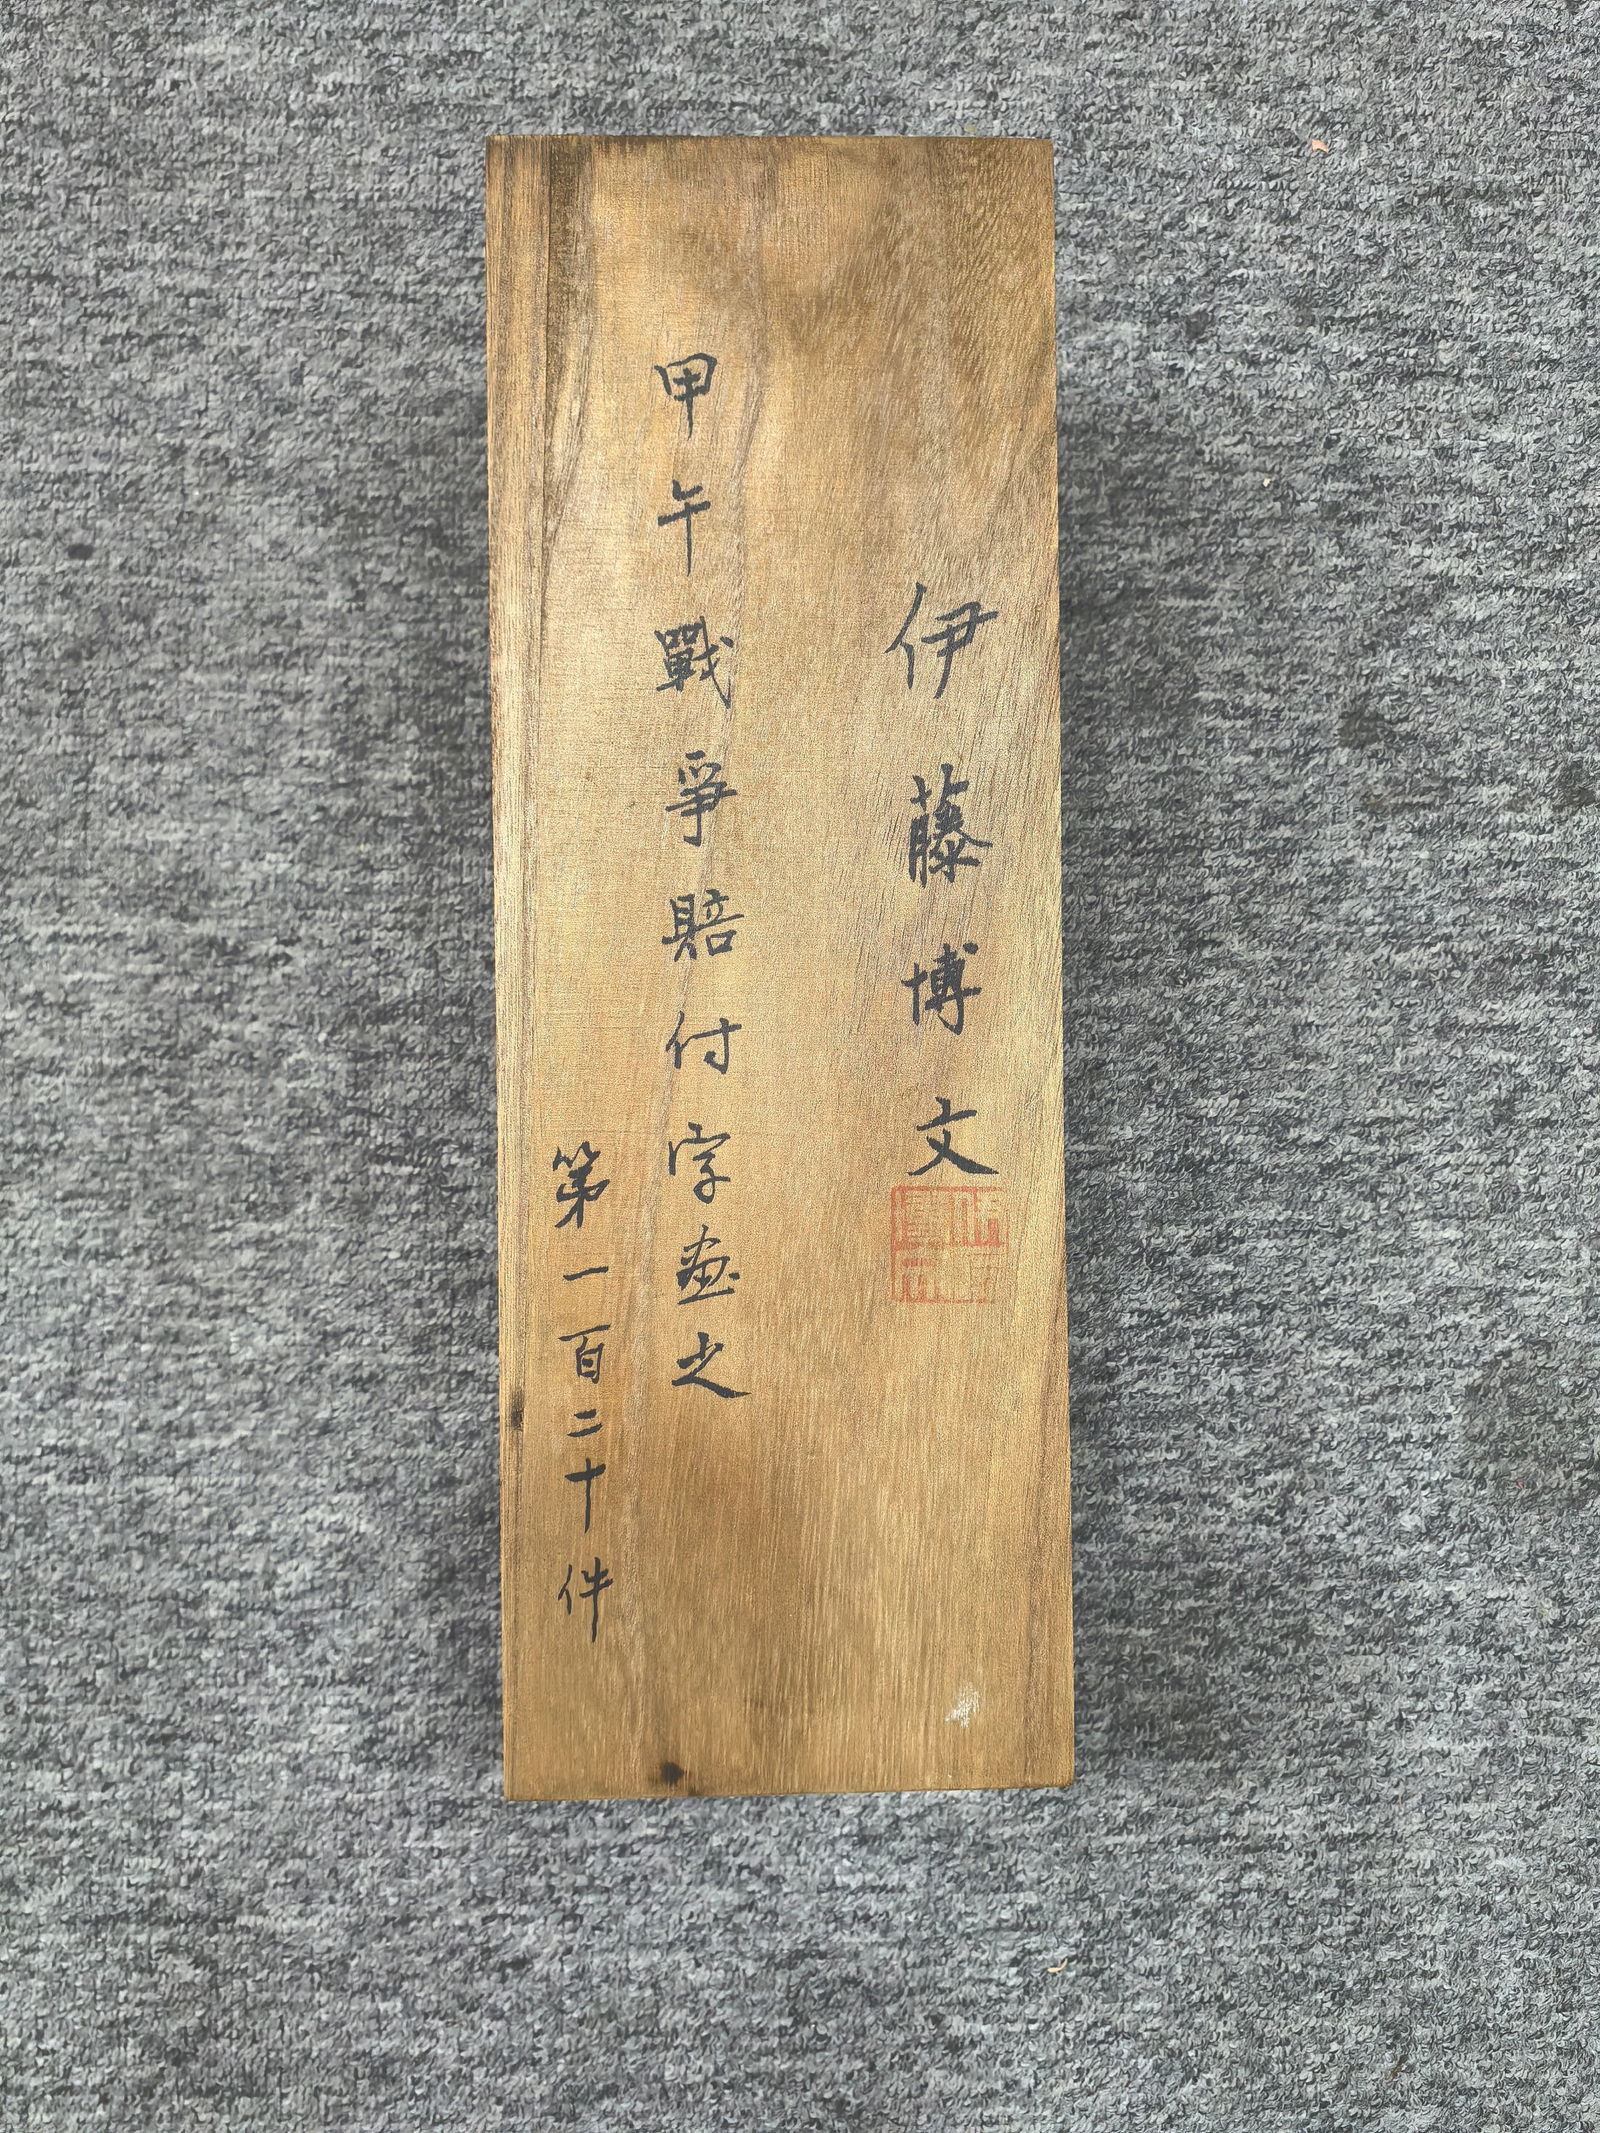 伊藤博文
甲午戰爭賠付字画之
第一百二十件